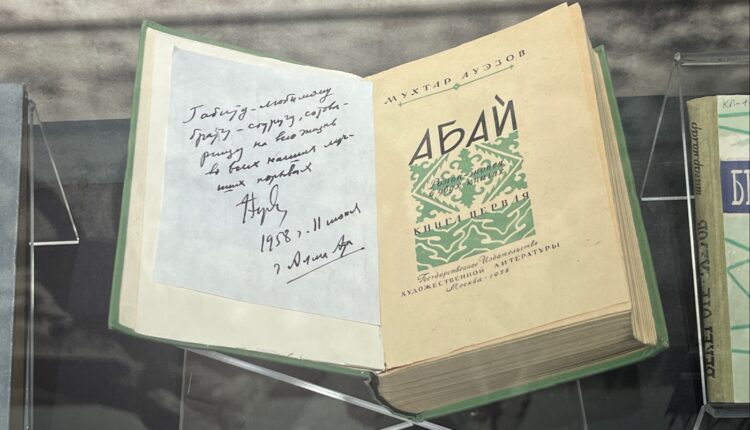 Габиту - любимому
брату - другу, сотова-
рищу на всю жизнь
во всех наших луч-
ших порывах
1958 г. 11
г Алма
МУХТАР АУЭЗОВ
АБАЙ
Роман-эпопея
в двух книгах
КНИГА ПЕРВАЯ
Государственное Издательство
ХУДОЖЕСТВЕННОЙ ЛИТЕРАТУРЫ
Москва · 1958
КП-1
шығармалар